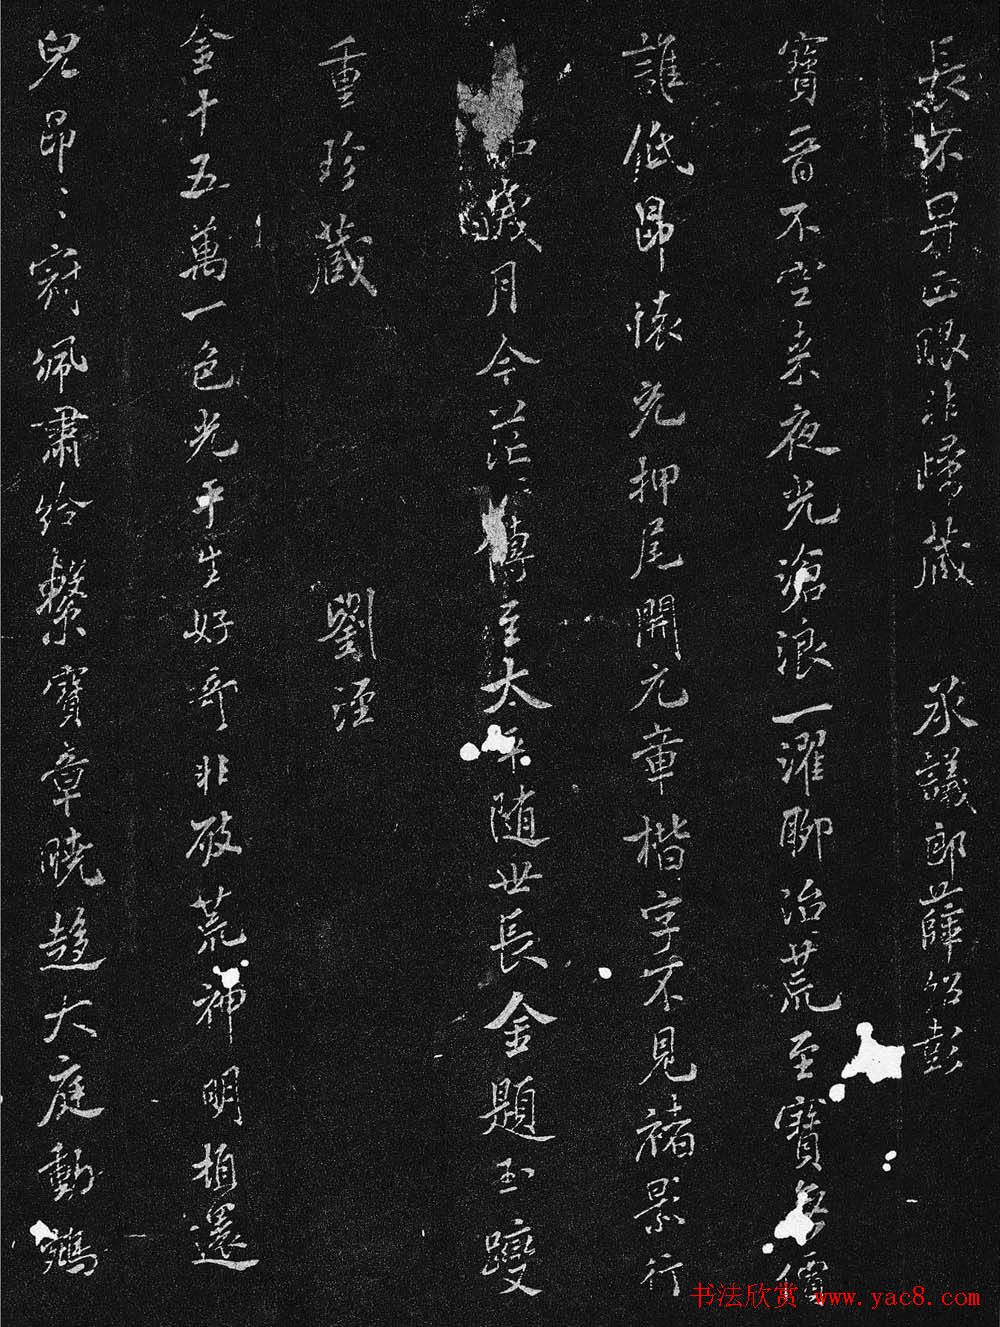 長 正眼非 藏 承議郎薛紹彭
寶音不空来夜光滄浪一濯聊治荒至寶無價
誰低昂懷充押尾開元章楷字不見褚影行
歲月今茫 傳至太平随世長金題玉躞
重珍藏 劉涇
金十五萬一色光平生好奇非破荒神明 還
兒昂〻冠佩肅 繫寶章曉趨大庭動鵷
书法欣赏 www.yac8.com